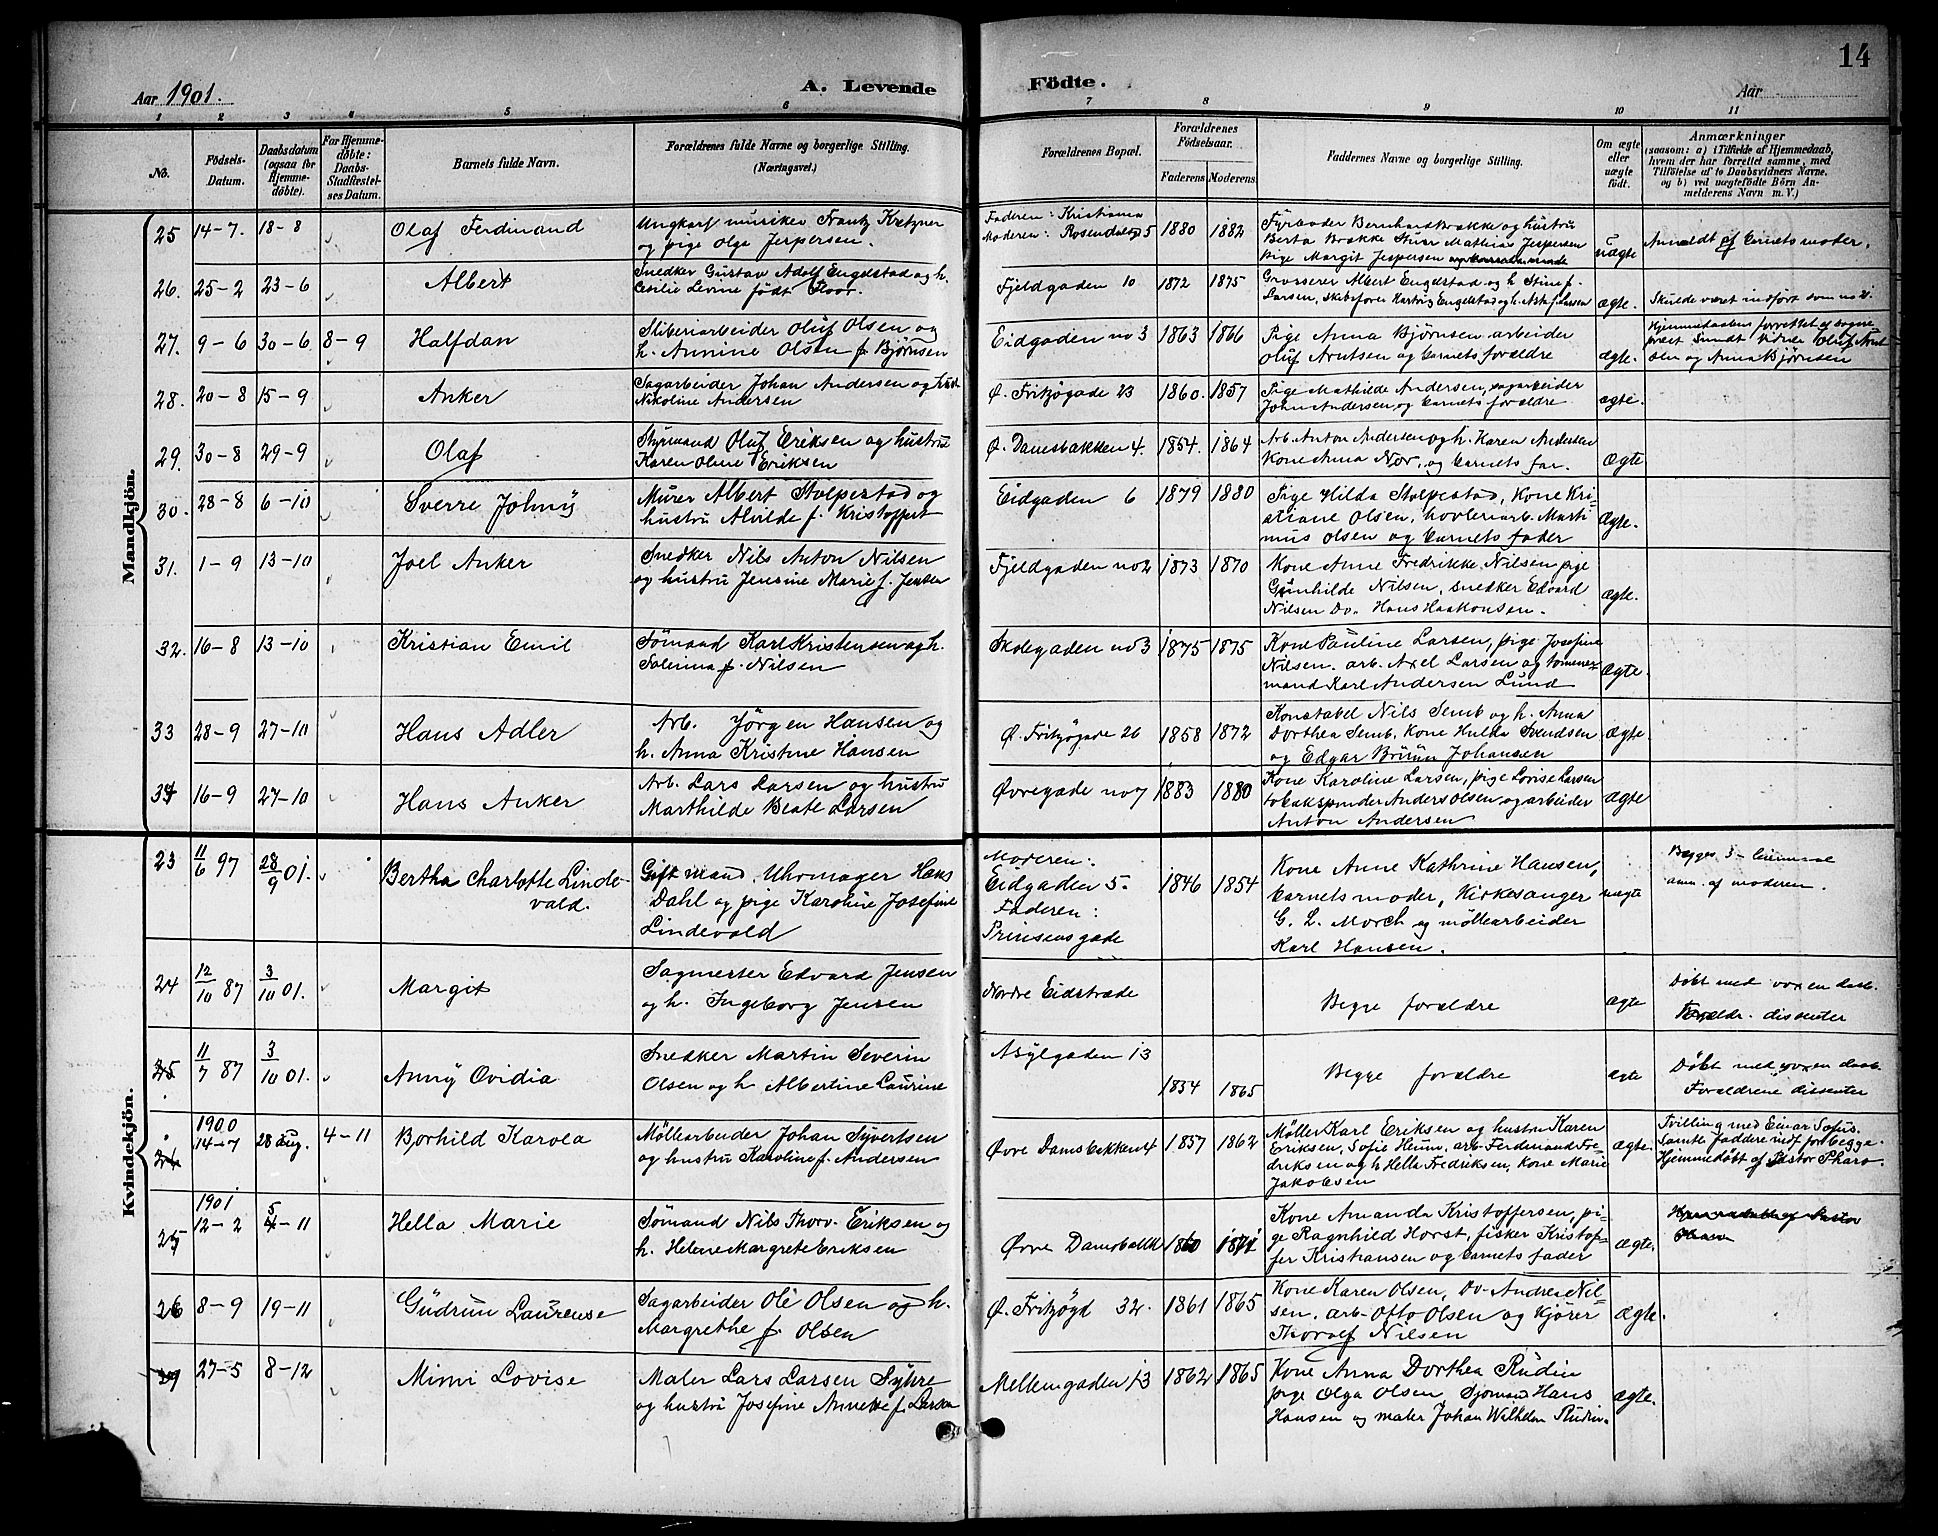 14
Aar 1901.
A. Levende Födte.
Aar
1 2 3 4 5 6 7 8 9 10 11
No.
Födsels-Datum.
Daabsdatum (ogsaa for Hjemme-döbte).
For Hjemme-döbte: Daabs-Stadfæstel-ses Datum.
Barnets fulde Navn.
Forældrenes fulde Navne og borgerlige Stilling. (Næringsvei.)
Forældrenes Bopæl.
Forældrenes Födselsaar.
Faderens. Moderens.
Faddernes Navne og borgerlige Stilling.
Om ægte eller uægte födt.
Anmærkninger
(saasom: a) i Tilfælde af Hjemmedaab,
hvem der har forrettet samme, med
Tilföielse af to Daabsvidners Navne.
og b) ved uægtefödte Börn An-
melderens Navn m. V.)
Mandkjön.
25 14-7. 18-8 Olaf Ferdinand
Ungkarl musiker Frantz Kretzner
og pige Olga Jespersen.
Faderen: Kristiania
Moderen: Rosendalsg 5
1880 1882
Fyrbøder Bernhard Brække og hustru
Berta Brække Stuer Mathias Jespersen
Pige Margit Jespersen
uægte
Anmeldt af barnets moder.
26. 25-2 23-6 Albert
Snedker Gustav Adolf Engelstad og h.
Cecilie Levine født Floor.
Fjeldgaden 10
1872 1875
Grosserer Albert Engelstad og h Stine f.
Larsen, skibsfører Hartvig Engelstad og h. Asta f. Larsen
ægte.
Skulde været indført som no 21.
27. 9-6 30-6 8-9 Halfdan
Sliberiarbeider Oluf Olsen og
h. Annine Olsen f. Bjørnsen
Eidgaden no 3
1863 1866
Pige Anna Bjørnsen arbeider
Oluf Arntsen og barnets forældre
ægte.
Hjemmedaaben forrettet af sogne
præst Sundt Vidner Oluf Arnt
sen og Anna Bjørnsen
28. 20-8 15-9 Anker
Sagarbeider Johan Andersen og hust
Nikoline Andersen
Ø. Fritzøgade 23
1860. 1857
Pige Mathilde Andersen, sagarbeider
John Andersen og barnets forældre
ægte.
29. 30-8 29-9 Olaf
Styrmand Oluf Eriksen og hustru
Karen Oline Eriksen
Ø. Damsbakken 4.
1854. 1864
Arb. Anton Andersen og h. Karen Andersen
Kone Anna Nor, og barnets far.
Ægte
30. 28-8 6-10 Sverre Johnÿ
Murer Albert Stolpestad og
hustru Alvilde f. Kristoffers
Eidgaden 6
1879 1880
Pige Hilda Stolpestad, Kone Kri-
stiane Olsen, høvleriarb. Marti-
nius Olsen og barnets fader
Ægte.
31. 1-9 13-10 Joel Anker
Snedker Nils Anton Nilsen
og hustru Jensine Marie f. Jensen
Fjeldgaden no 2
1873 1870
Kone Anne Fredrikke Nilsen pige
Gunhilde Nilsen, snedker Edvard
Nilsen Do. Hans Haakonsen.
ægte.
32. 16-8 13-10 Kristian Emil
Sømand Karl Kristensen og h.
Solerma f. Nilsen
Skolegaden no 3
1875 1875
Kone Pauline Larsen, pige Josefine
Nilsen. arb. Axel Larsen og tømmer-
mand Karl Andersen Lund
ægte.
33 28-9 27-10 Hans Adler
Arb. Jörgen Hansen og
h. Anna Kristine Hansen
Ø. Fritzøgade 26
1858 1872
Konstabel Nils Semb og h. Anna
Dorthea Semb. Kone Hulda Svendsen
og Edgar Bruun Johansen
ægte.
34 16-9 27-10 Hans Anker
Arb. Lars Larsen og hustru
Marthilde Beate Larsen
Øvregade no 7
1883 1880
Kone Karoline Larsen, pige Lovise Larsen
tobakspinder Anders Olsen og arbeider
Anton Andersen
ægte
Kvindekjön.
23 11/6 97 28/9 01. Bertha Charlotte Linde-
vald.
Gift mand, Uhrmager Hans
Dahl og pige Karoline Josefine
Lindevald
Moderen:
Eidgaden 5.
Faderen:
Prinsensgade
1846 1854
Kone Anne Kathrine Hansen,
barnets moder, Kirkesanger
G. L. Morch og møllearbeider
Karl Hansen.
uægte
Begges 3- leiermaal
anm. af moderen.
24 12/10 87 3/10 01. Margit
Sagmester Edvard Jensen
og h. Ingeborg Jensen
Nordre Eidstræde
Begge forældre
ægte
Døbt med voxen daab.
Forældr. dissenter
25 11/7 87 3/10 01. Anny Ovidia
Snedker Martin Severin
Olsen og h Albertine Laurine
Asylgaden 13
1854 1865
Begge forældre
ægte
Døbt med voxen daab.
Forældrene dissenter
24 1900 14-7 28 aug. 4-11 Borhild Karola
Møllearbeider Johan Syvertsen
og hustru Karoline f. Andersen
Øvre Damsbakken 4
1857 1862
Møller Karl Eriksen og hustru Karen
Eriksen, Sofie Heum, arb. Ferdinand Fre-
driksen og h Hella Fredriksen, Kone Marie
Jakobsen
ægte.
Tvilling med Einar Sofus.
Samtl faddere indf. for begge.
Hjemmedøbt af Pastor Pharo.
25 1901 12-2 5-11 Hella Marie
Sømand Nils Thorv. Eriksen og
h. Helene Margrete Eriksen
Øvre Damsbakk
1860
Kone Amanda Kristoffersen, pi-
ge Ragnhild Horst, fisker Kristof-
fer Kristiansen og barnets fader
ægte.
26 8-9 19-11 Gudrun Laurense
Sagarbeider Ole Olsen og h.
Margrethe f. Olsen
Ø. Fritzøgd 32.
1861 1865
Kone Karen Olsen, Do. Andrea Nil-
sen, arb. Otto Olsen og kjører
Thoralf Nilsen
Ægte.
27 27-5 8-12 Mimi Lovise
Maler Lars Larsen Syhre
og hustru Josefine Annette f. Larsen
Mellemgaden 13
1862 1865
Kone Anna Dorthea Rudin
pige Olga Olsen, Sjømand Hans
Hansen og maler Johan Wilhelm Rudin.
ægte.